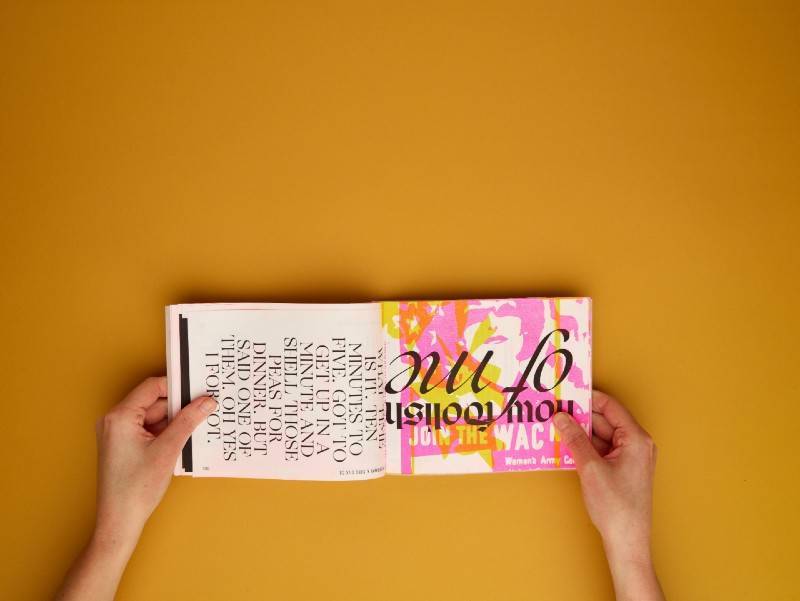 IS IT. TEN
MINUTES TO
FIVE. GOT TO
GET UP IN A
MINUTE AND
SHELL THOSE
PEAS FOR
DINNER. BUT
SAID ONE OF
THEM, OH YES
I FORGOT.
how foolish
of me
JOIN THE WAC
Women's Army